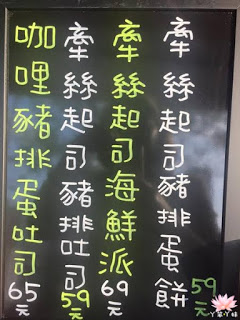 牽絲起司豬排蛋餅59元
牽絲起司海鮮派69元
牽絲起司豬排吐司59元
咖哩豬排蛋吐司65元